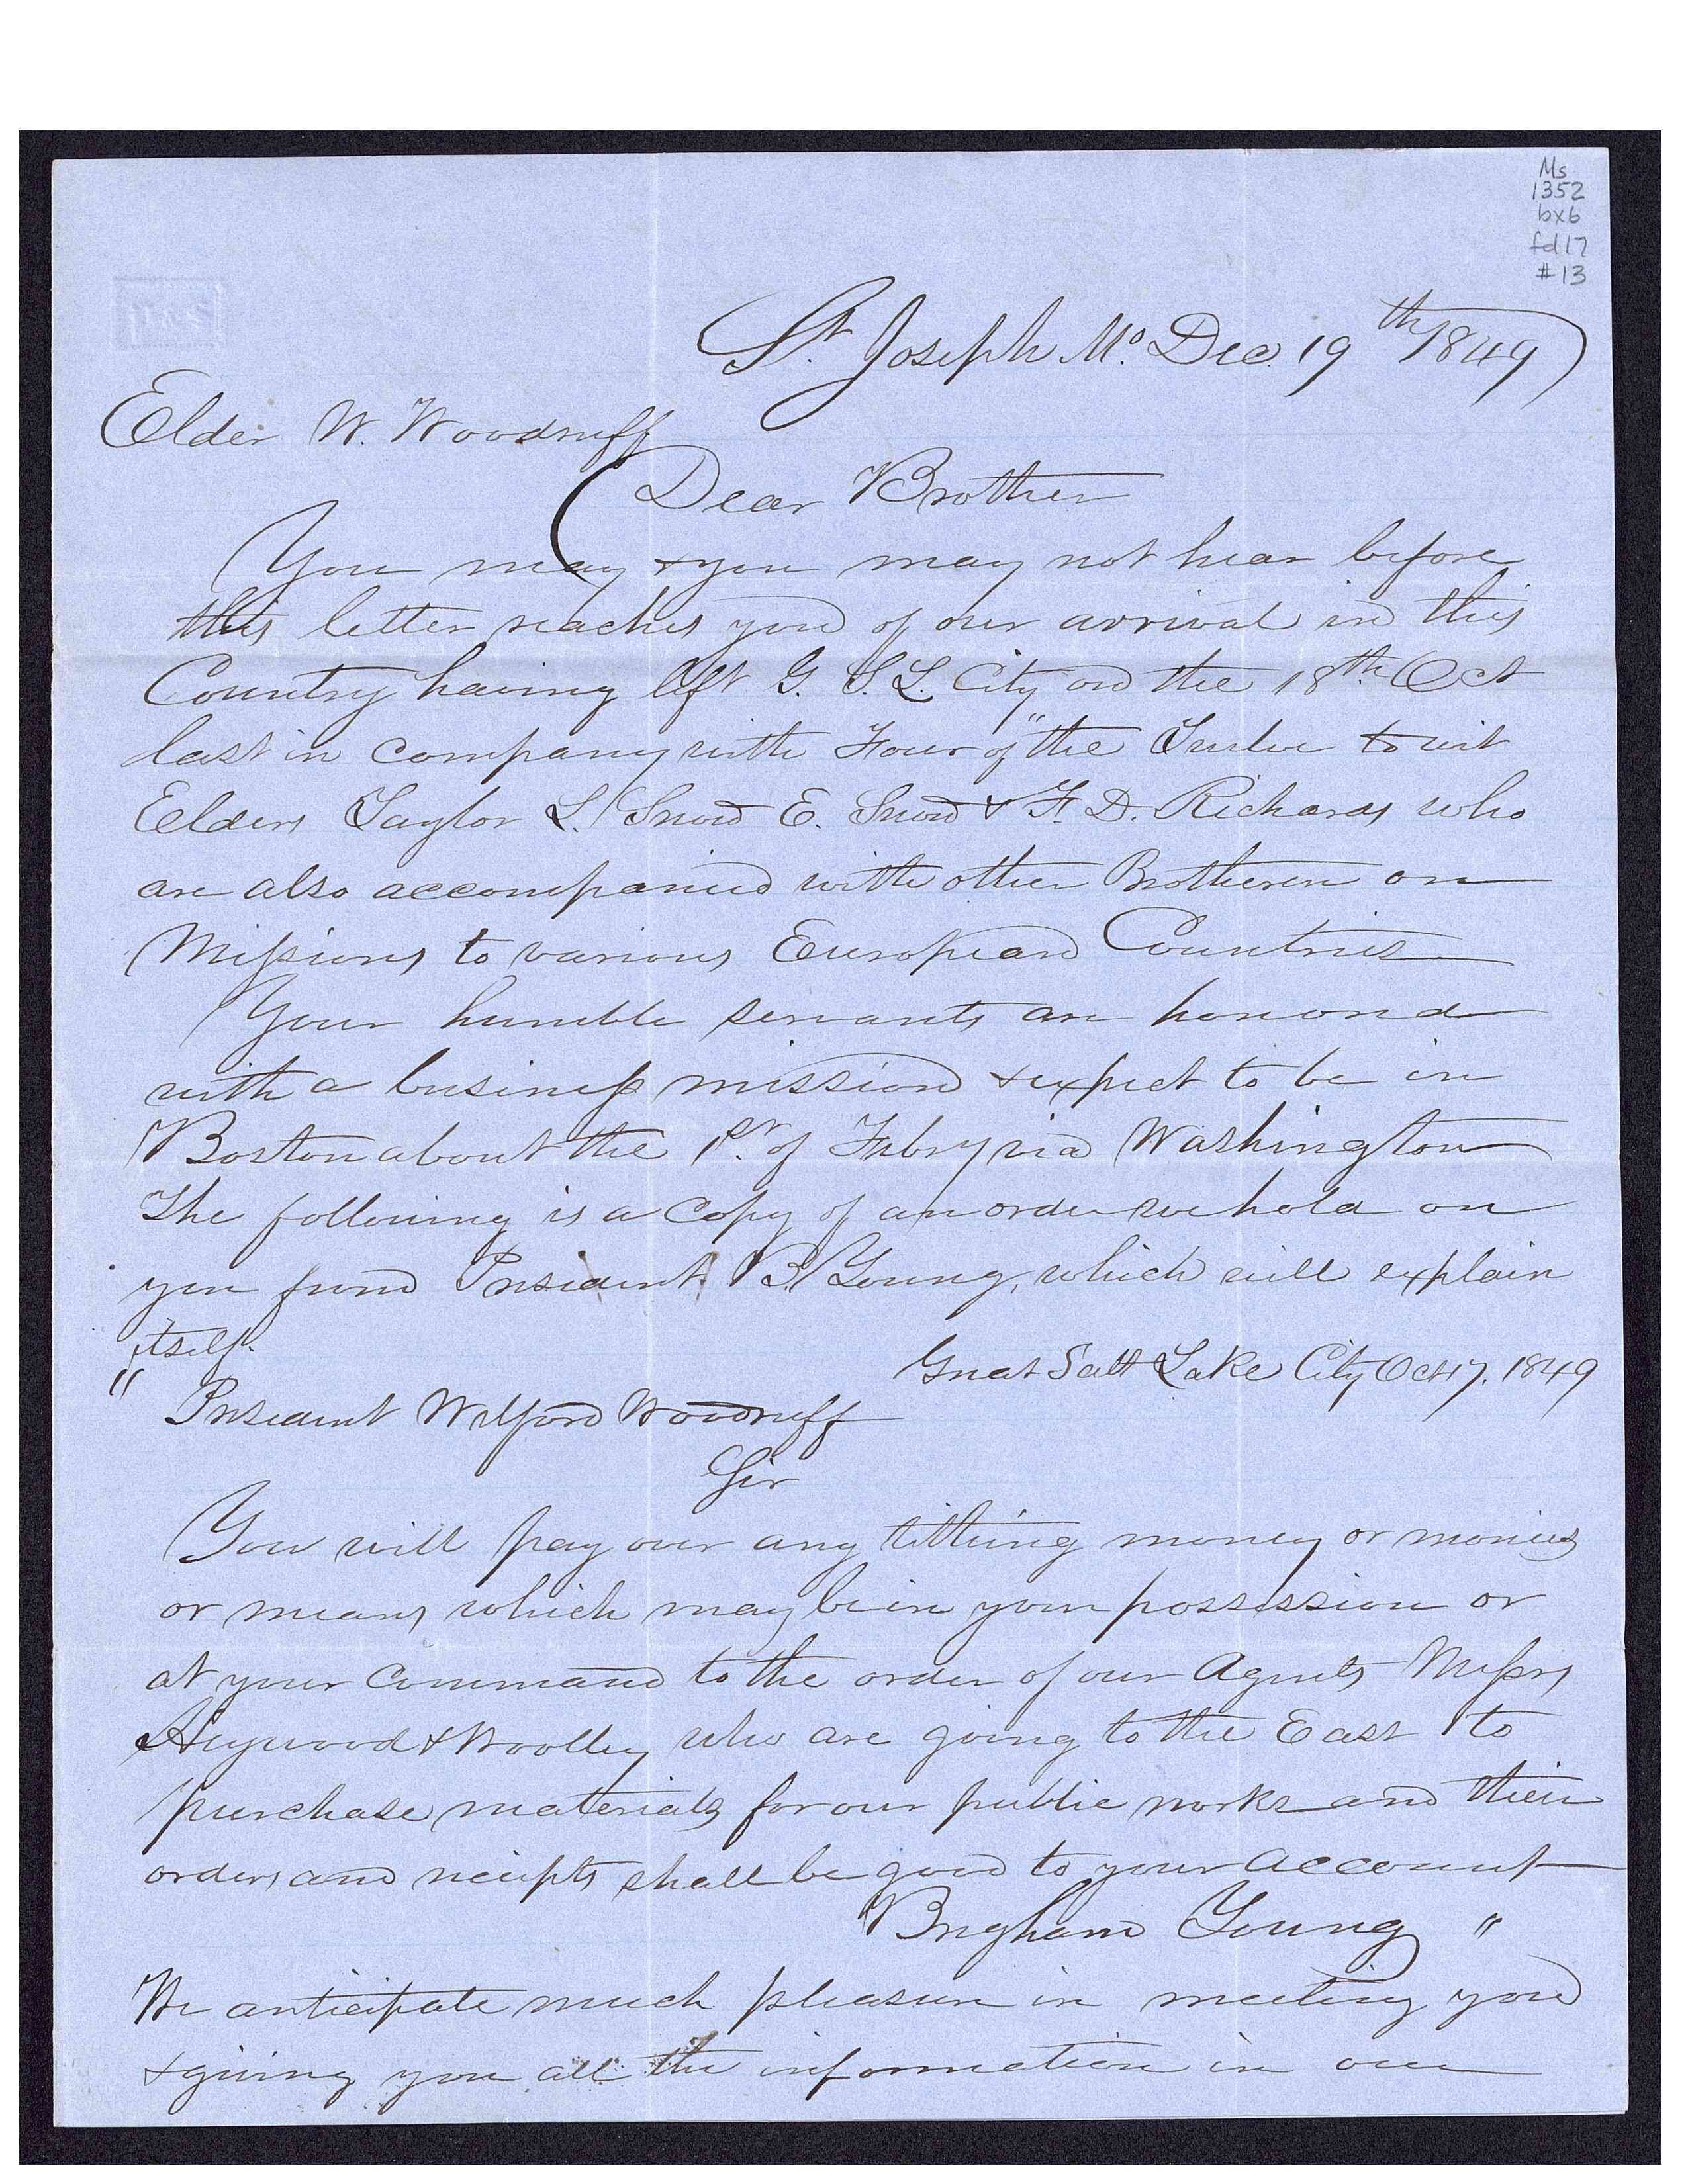 Ms
1352
bx6
fd17
#13
St. Joseph Mo. Dec. 19th 1849
Elder W. Woodruff
Dear Brother
You may & you may not hear before
this letter reaches you of our arrival in this
Country having left G. S. L. City on the 18th Oct
last in company with Four of "the Twelve to wit
Elders Taylor L. Snow E. Snow & F. D. Richards who
are also accompanied with other Brotheren on
Missions to various European Countries
Your humble servants are honord
with a business mission & expect to be in
Boston about the 1st. of Febry via Washington
The following is a Copy of an order we hold on
you from President B. Young, which will explain
itself.
Great Salt Lake City Oct 17. 1849
" President Wilford Woodruff
Sir
You will pay over any tithing money or monies
or means which may be in your possession or
at your command to the order of our Agents Messrs
Heywood & Woolley who are going to the East to
purchase materials for our public works and their
orders and reciepts shall be good to your account
Brigham Young "
We anticipate much pleasure in meeting you
& giving you all the information in our